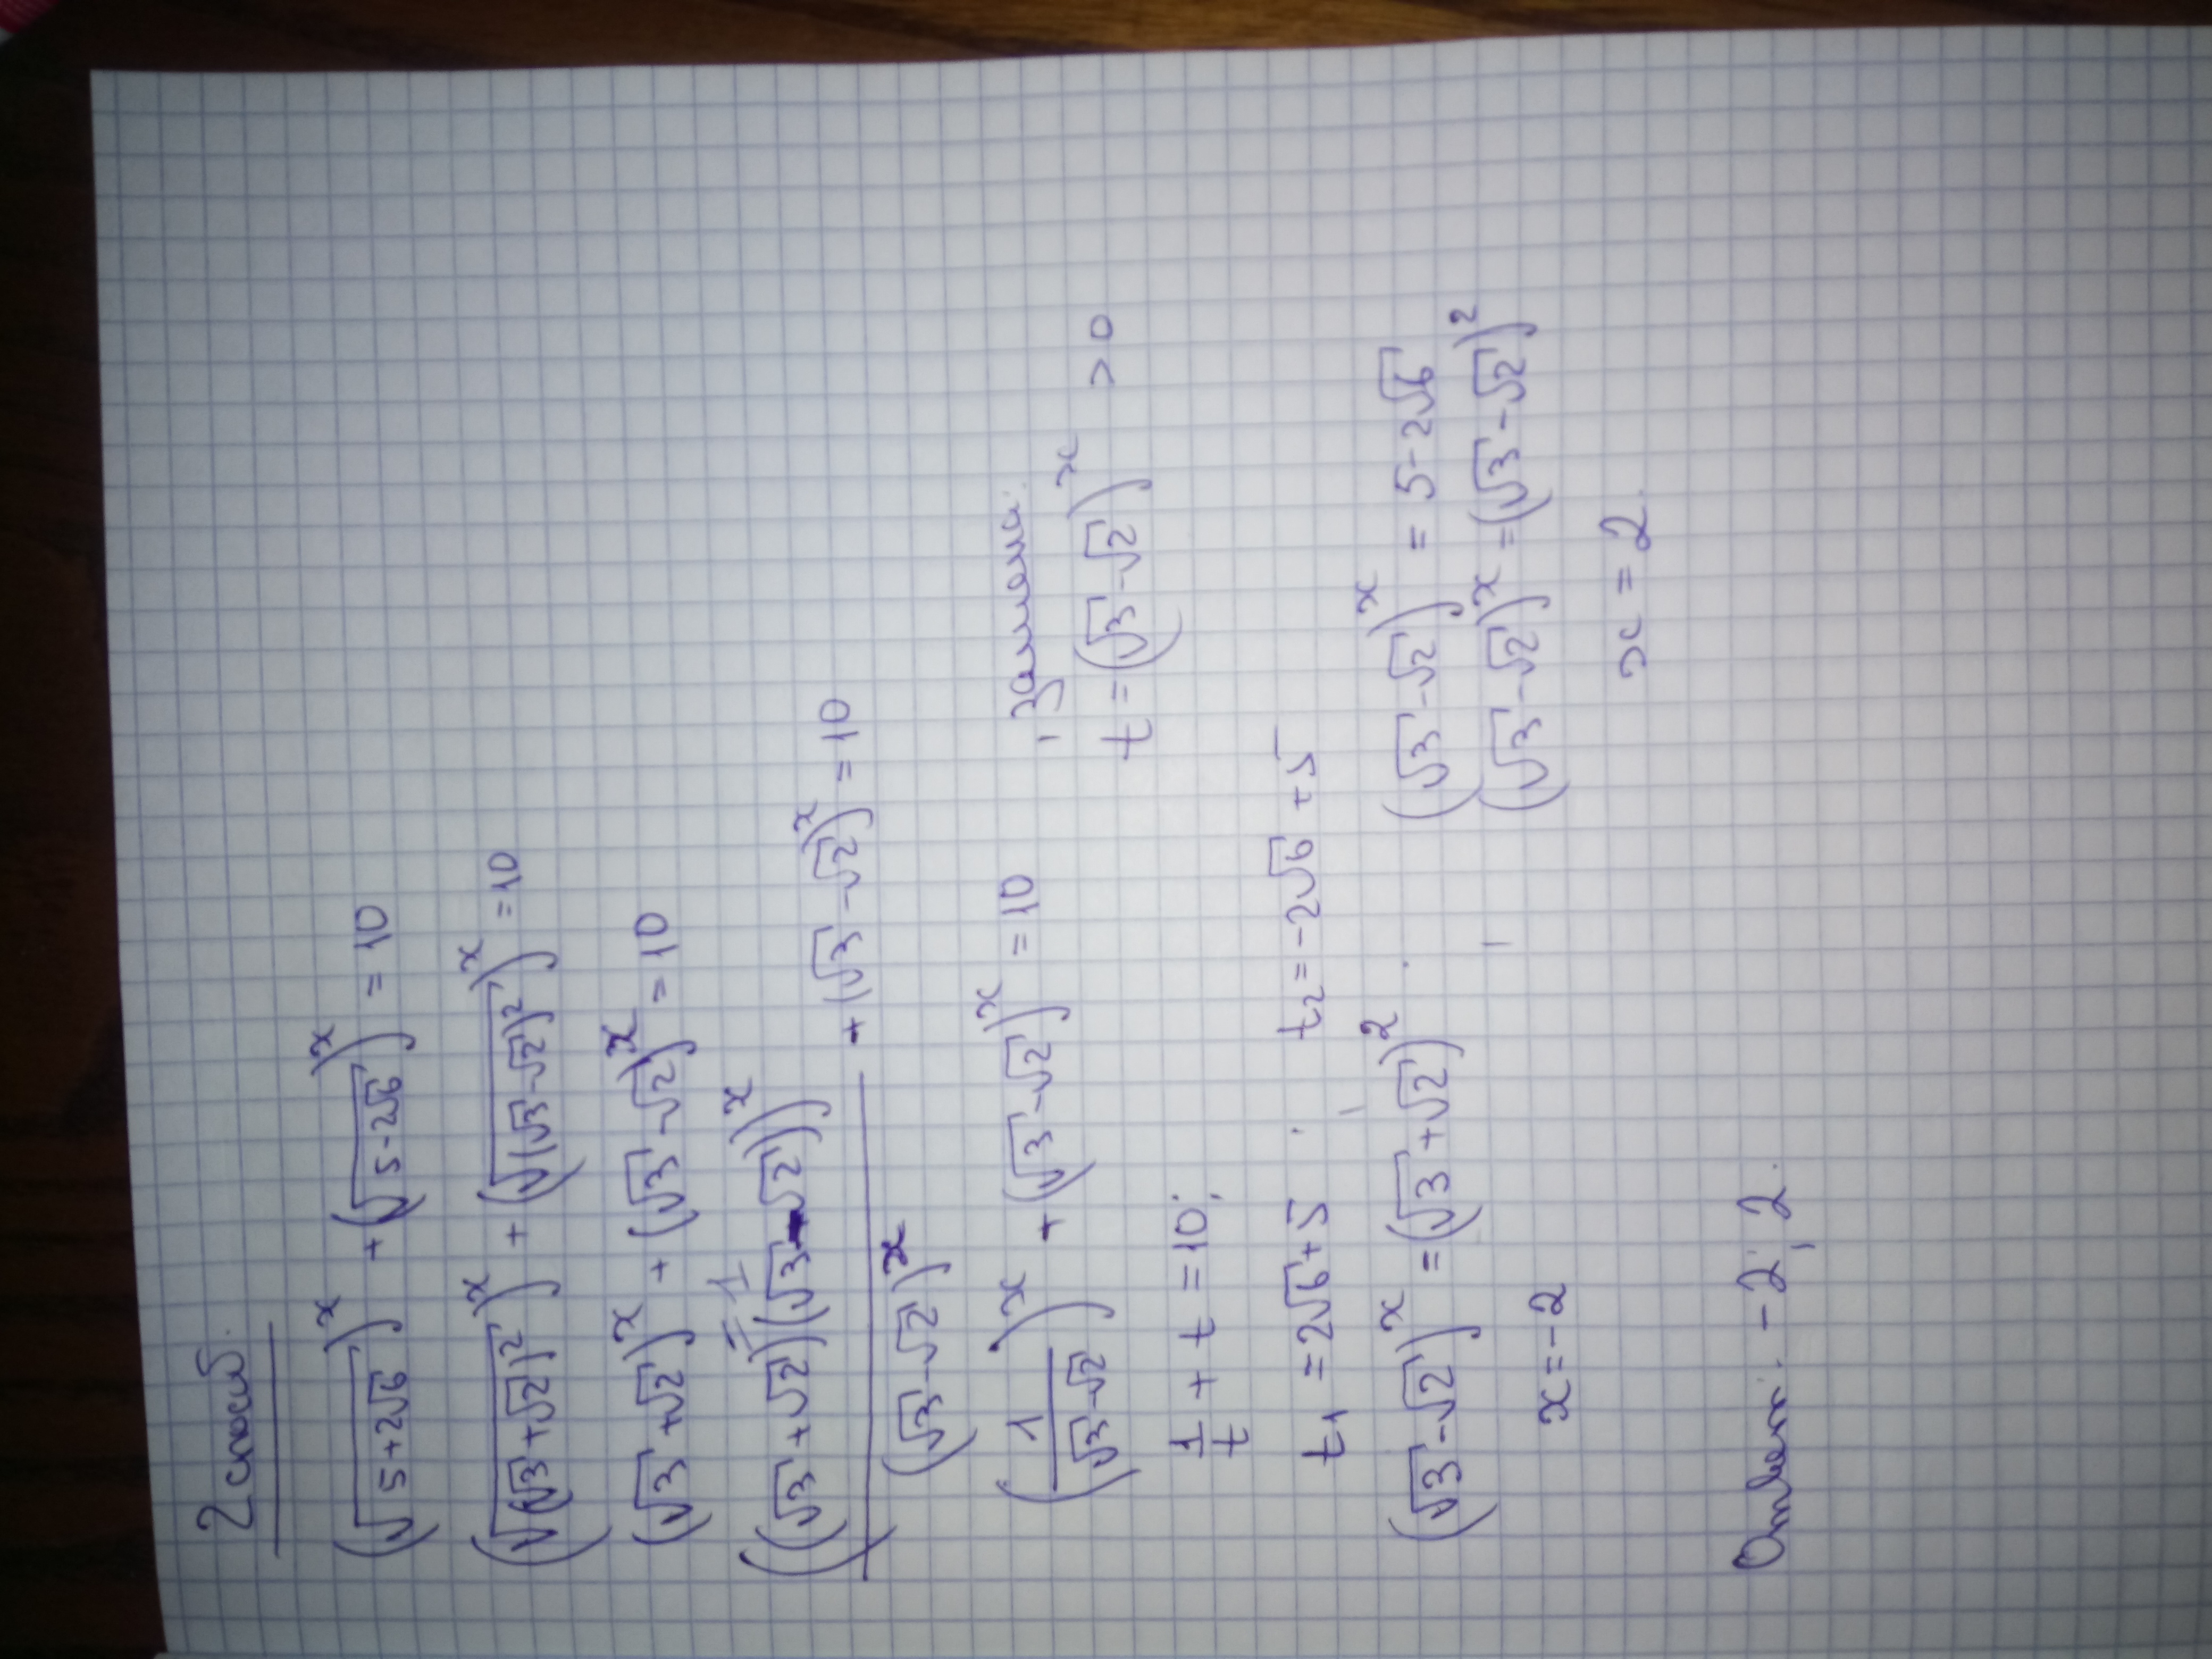 2 способ.
(√(5+2√6))^x + (√(5-2√6))^x = 10
(√((√3+√2)²))^x + (√((√3-√2)²))^x = 10
(√3+√2)^x + (√3-√2)^x = 10
=1
((√3+√2)(√3-√2))^x / (√3-√2)^x + (√3-√2)^x = 10
(1/(√3-√2))^x + (√3-√2)^x = 10, замена:
t = (√3-√2)^x > 0
1/t + t = 10;
t₁ = 2√6+5 t₂ = -2√6+5
(√3-√2)^x = (√3+√2)² (√3-√2)^x = 5-2√6
(√3-√2)^x = (√3-√2)²
x = -2 x = 2.
Ответ: -2; 2.